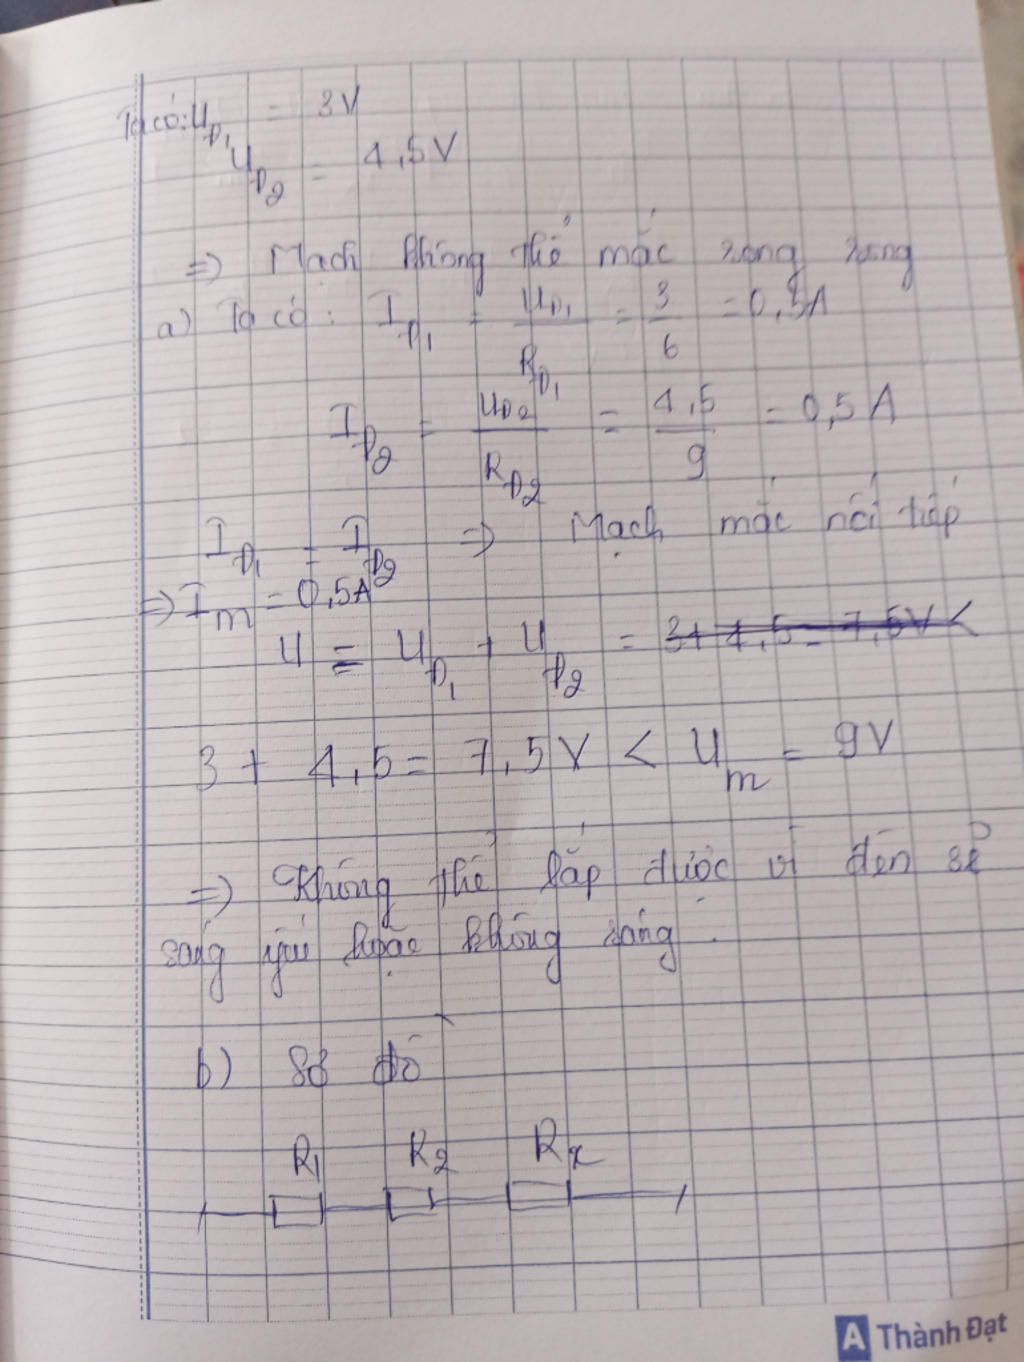 Ta có: U_Đ1 = 3V
U_Đ2 = 4,5V
=> Mạch không thể mắc song song
a) Ta có: I_Đ1 = U_Đ1/R_Đ1 = 3/6 = 0,5A
I_Đ2 = U_Đ2/R_Đ2 = 4,5/9 = 0,5A
I_Đ1 = I_Đ2 => Mạch mắc nối tiếp
=> I_m = 0,5A
U = U_Đ1 + U_Đ2 = 3 + 4,5 = 7,5V <
3 + 4,5 = 7,5V < U_m = 9V
=> Không thể lắp được vì đèn sẽ
sáng yếu hoặc không sáng.
b) Sơ đồ
R1 R2 Rx
A Thành Đạt